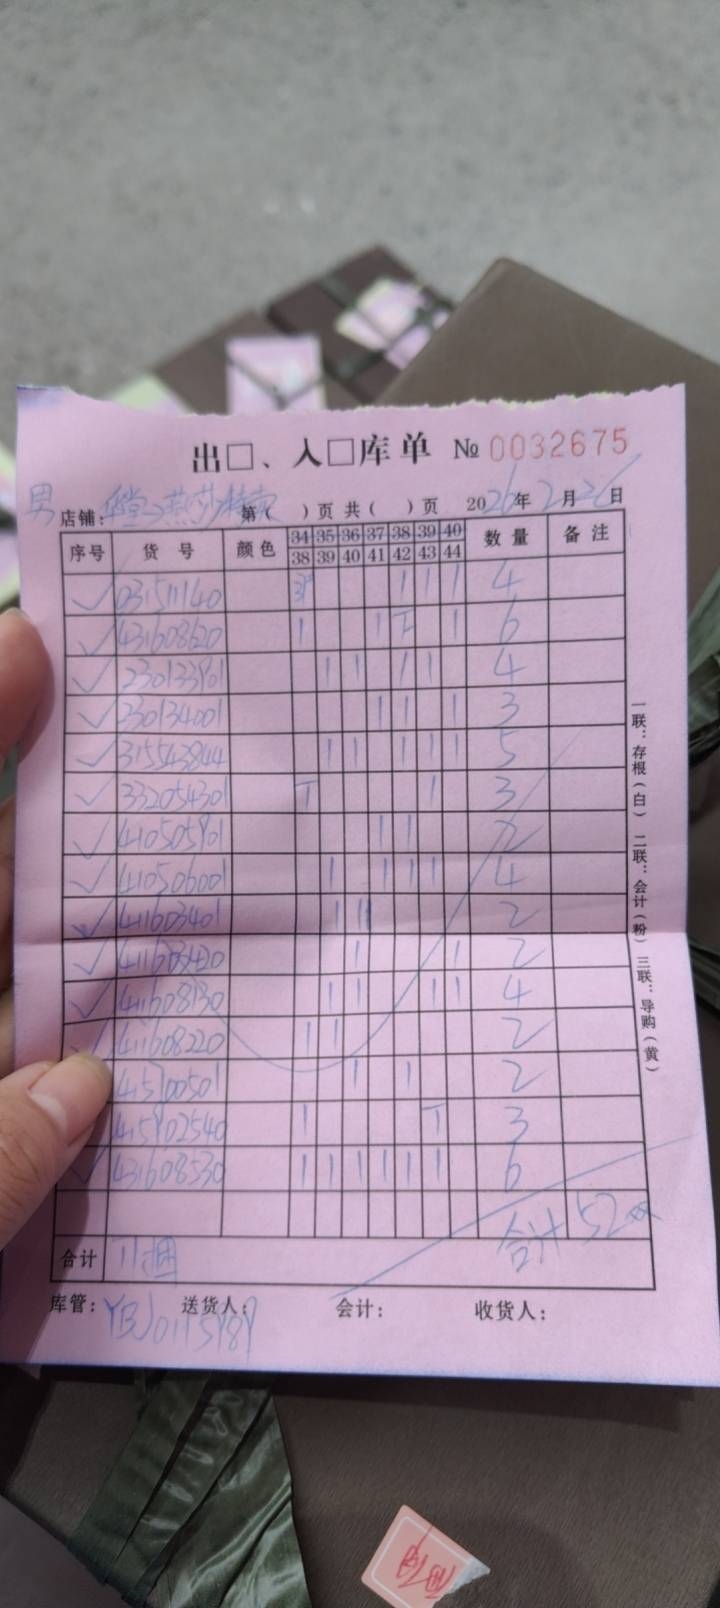 出□、入□库单 № 0032675
男 店铺: 第( )页 共( )页 2026年2月26日
序号 货号 颜色 34 35 36 37 38 39 40 数量 备注
38 39 40 41 42 43 44
✓ 031511140 1 1 1 4
✓ 431608620 1 1 T 1 6
✓ 230133901 1 1 1 1 4
✓ 230134001 1 1 1 3
✓ 315543844 1 1 1 1 1 5
✓ 332054301 T 1 3
✓ 410505901 1 1 2
✓ 410506001 1 1 1 1 4
✓ 411603401 1 1 2
✓ 411603420 1 1 2
✓ 411608130 1 1 1 1 4
✓ 411608220 1 1 2
415700501 1 1 2
415902540 1 T 3
✓ 431608530 1 1 1 1 1 1 6
合计 52双
合计 11捆
库管: YBJ0115989 送货人: 会计: 收货人:
一联:存根(白) 二联:会计(粉) 三联:导购(黄)